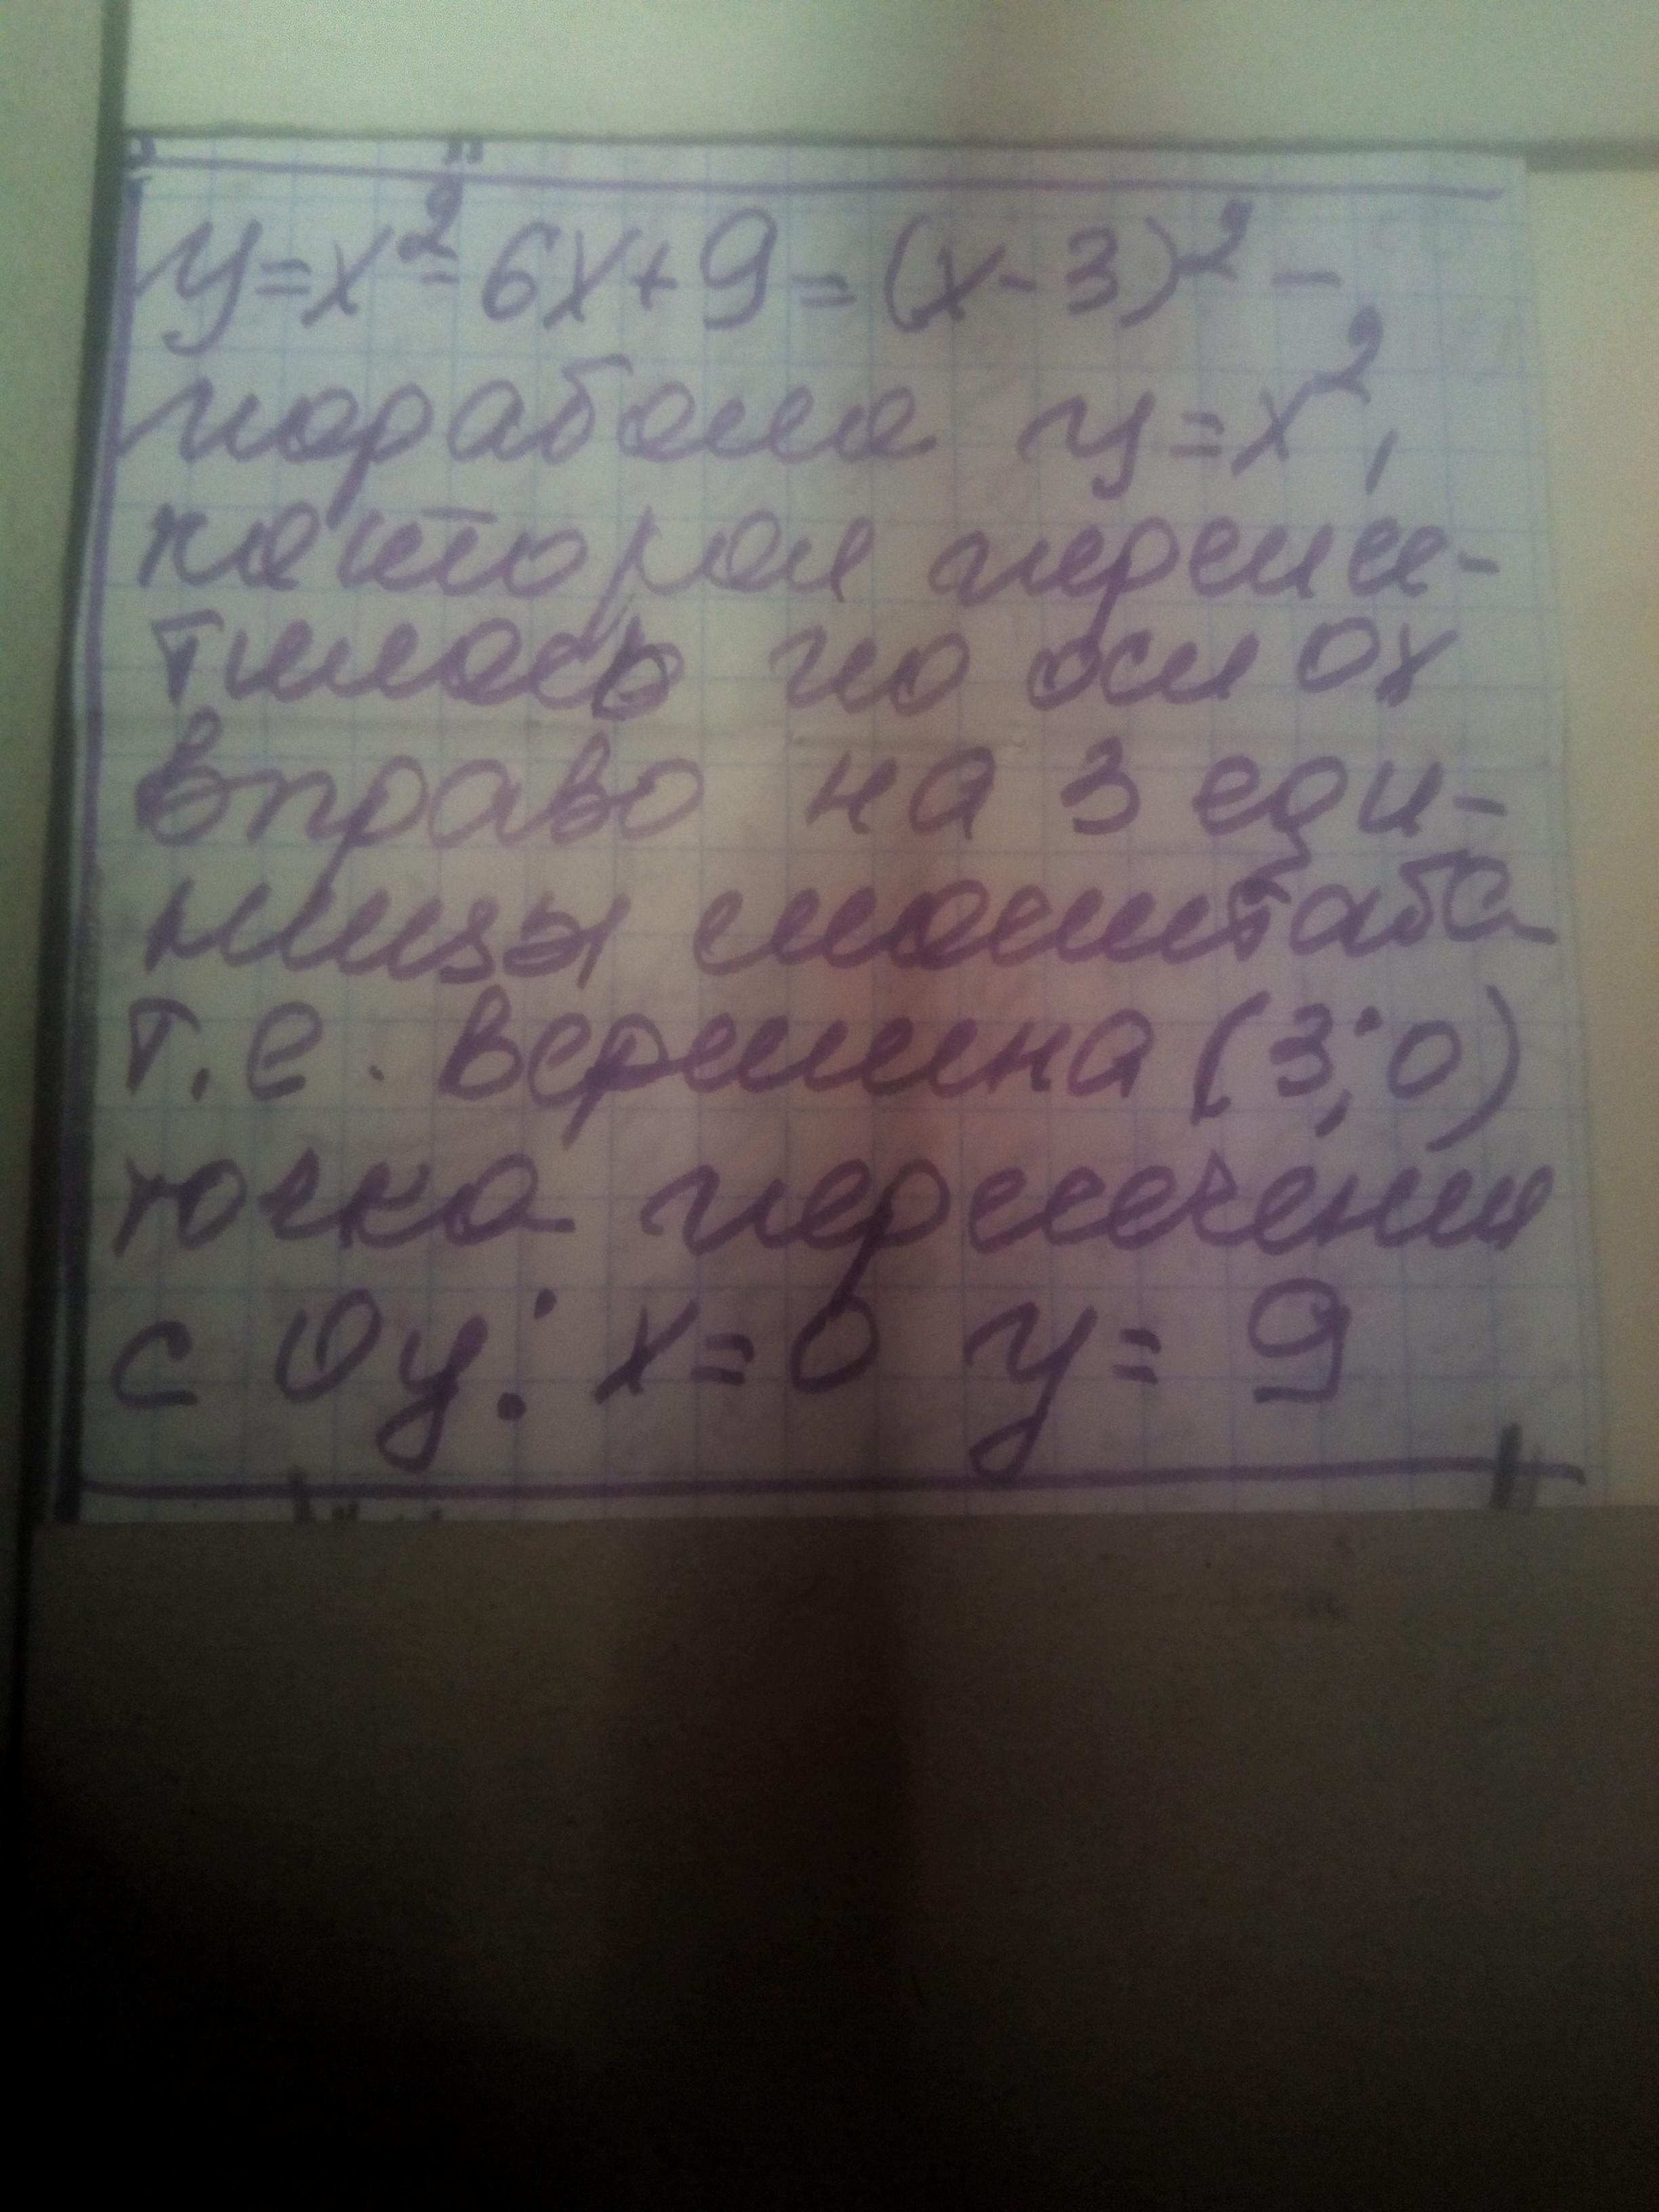 y=x²-6x+9=(x-3)²-
парабола y=x²,
которая переме-
тилась по оси Ох
вправо на 3 еди-
ницы масштаба
т.е. вершина (3;0)
точка пересечения
с Оу: x=0 y=9